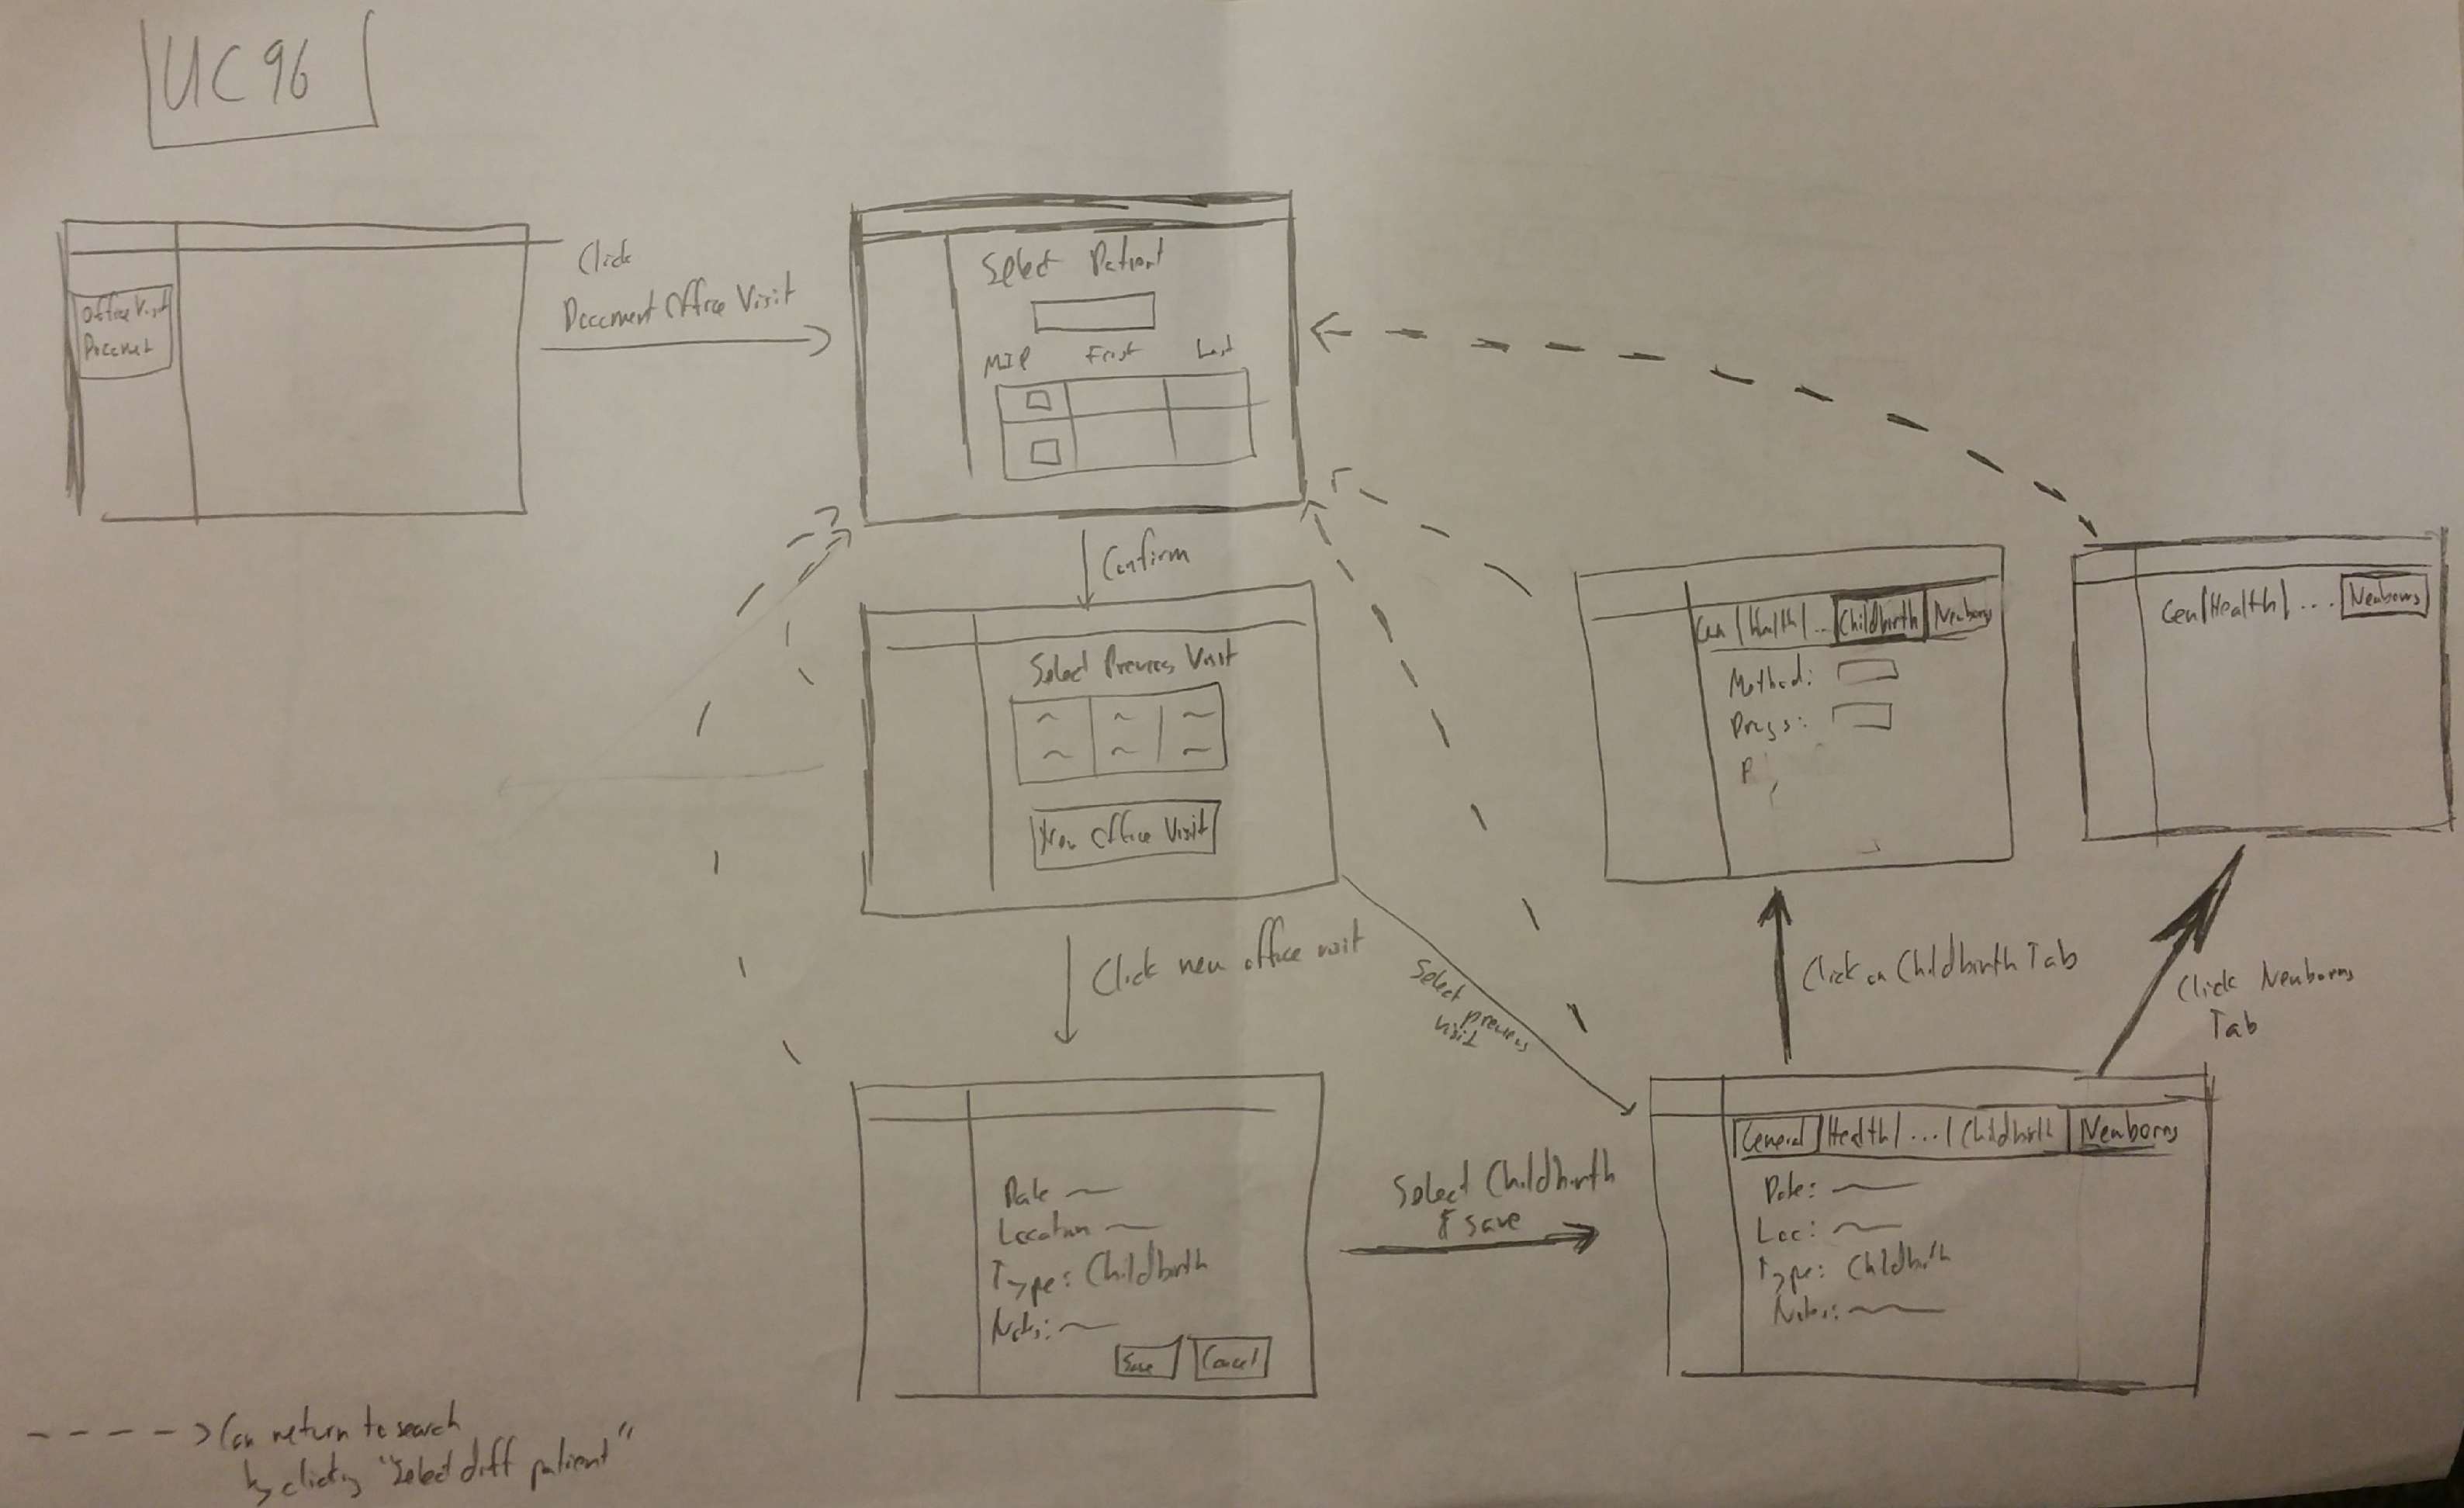 UC96
Office Visit
Document
Click
Document Office Visit
Select Patient
MID First Last
Confirm
Select Previous Visit
New Office Visit
Click new office visit
Select previous
visit
Date
Location
Type: Childbirth
Notes:
Save Cancel
Select Childbirth
& save
General | Health | ... | Childbirth | Newborns
Date:
Loc:
Type: Childbirth
Notes:
Click on Childbirth Tab
Click Newborns
Tab
Gen | Health | ... Childbirth Newborns
Method:
Drugs:
P
Gen | Health | ... Newborns
----> Can return to search
by clicking "Select diff patient"